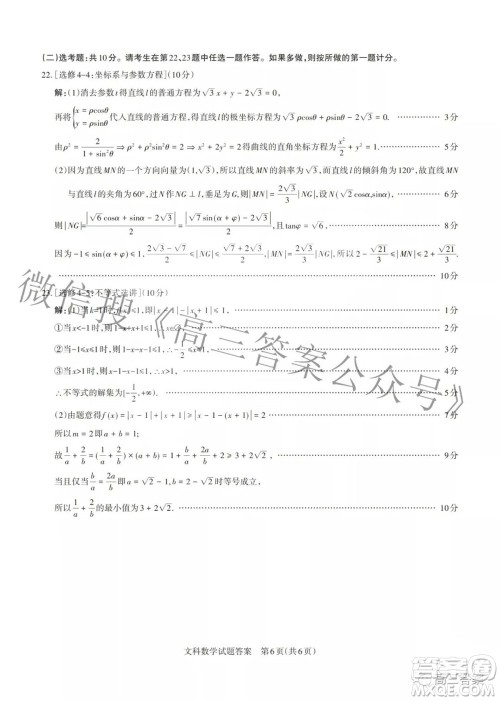 (二)选考题:共10分。请考生在第22、23题中任选一题作答。如果多做,则按所做的第一题计分。
22.[选修4-4:坐标系与参数方程](10分)
解:(1)消去参数t得直线l的普通方程为√3x+y-2√3=0,
再将{x=ρcosθ y=ρsinθ代入直线l的普通方程,得直线l的极坐标方程为 3分
由ρ²=2/(1+sin²θ)⇒ρ²+ρ²sin²θ=2⇒x²+2y²=2得曲线的直角坐标方程为x²/2+y²=1 5分
(2)因为直线MN的一个方向向量为(1,√3),所以直线MN的斜率为√3,所以直线MN的倾斜角为120°,故直线MN
与直线l的夹角为60°,过N作NG⊥l,垂足为G,则|MN|=2√3/3|NG|,设N(√2cosα,sinα), 6分
则|NG|=|√6cosα+sinα-2√3|/2=|√7sin(α+φ)-2√3|/2,且tanφ=√6 8分
因为-1≤sin(α+φ)≤1,(2√3-√7)/2≤|NG|≤(√7+2√3)/2,|MN|=2√3/3|NG|,所以2-√21/3≤|MN|≤2+√21/3
10分
23.[选修4-5:不等式选讲](10分)
解:(1)当a=1时,即|x-1|-|x|≤1, 1分
①当x<-1时,所以1-x+x≤1, 2分
②当 时,所以1-x-x≤1, 3分
③当x>1时,所以x-1-x≤1, 4分
∴不等式的解集为[-1/2,+∞). 5分
(2)由题意得f(x)=|x-a|+|x+b|≥|a+b|=a+b,
所以m=2即a+b=1;
故1/a+2/b=1+b/a+2a/b+2≥3+2√2, 9分
当且仅当b/a=2a/b即a=√2-1,b=2-√2时等号成立,
所以1/a+2/b的最小值为3+2√2. 10分
文科数学试题答案 第6页(共6页)
微信搜《高三答案公众号》
高三答案